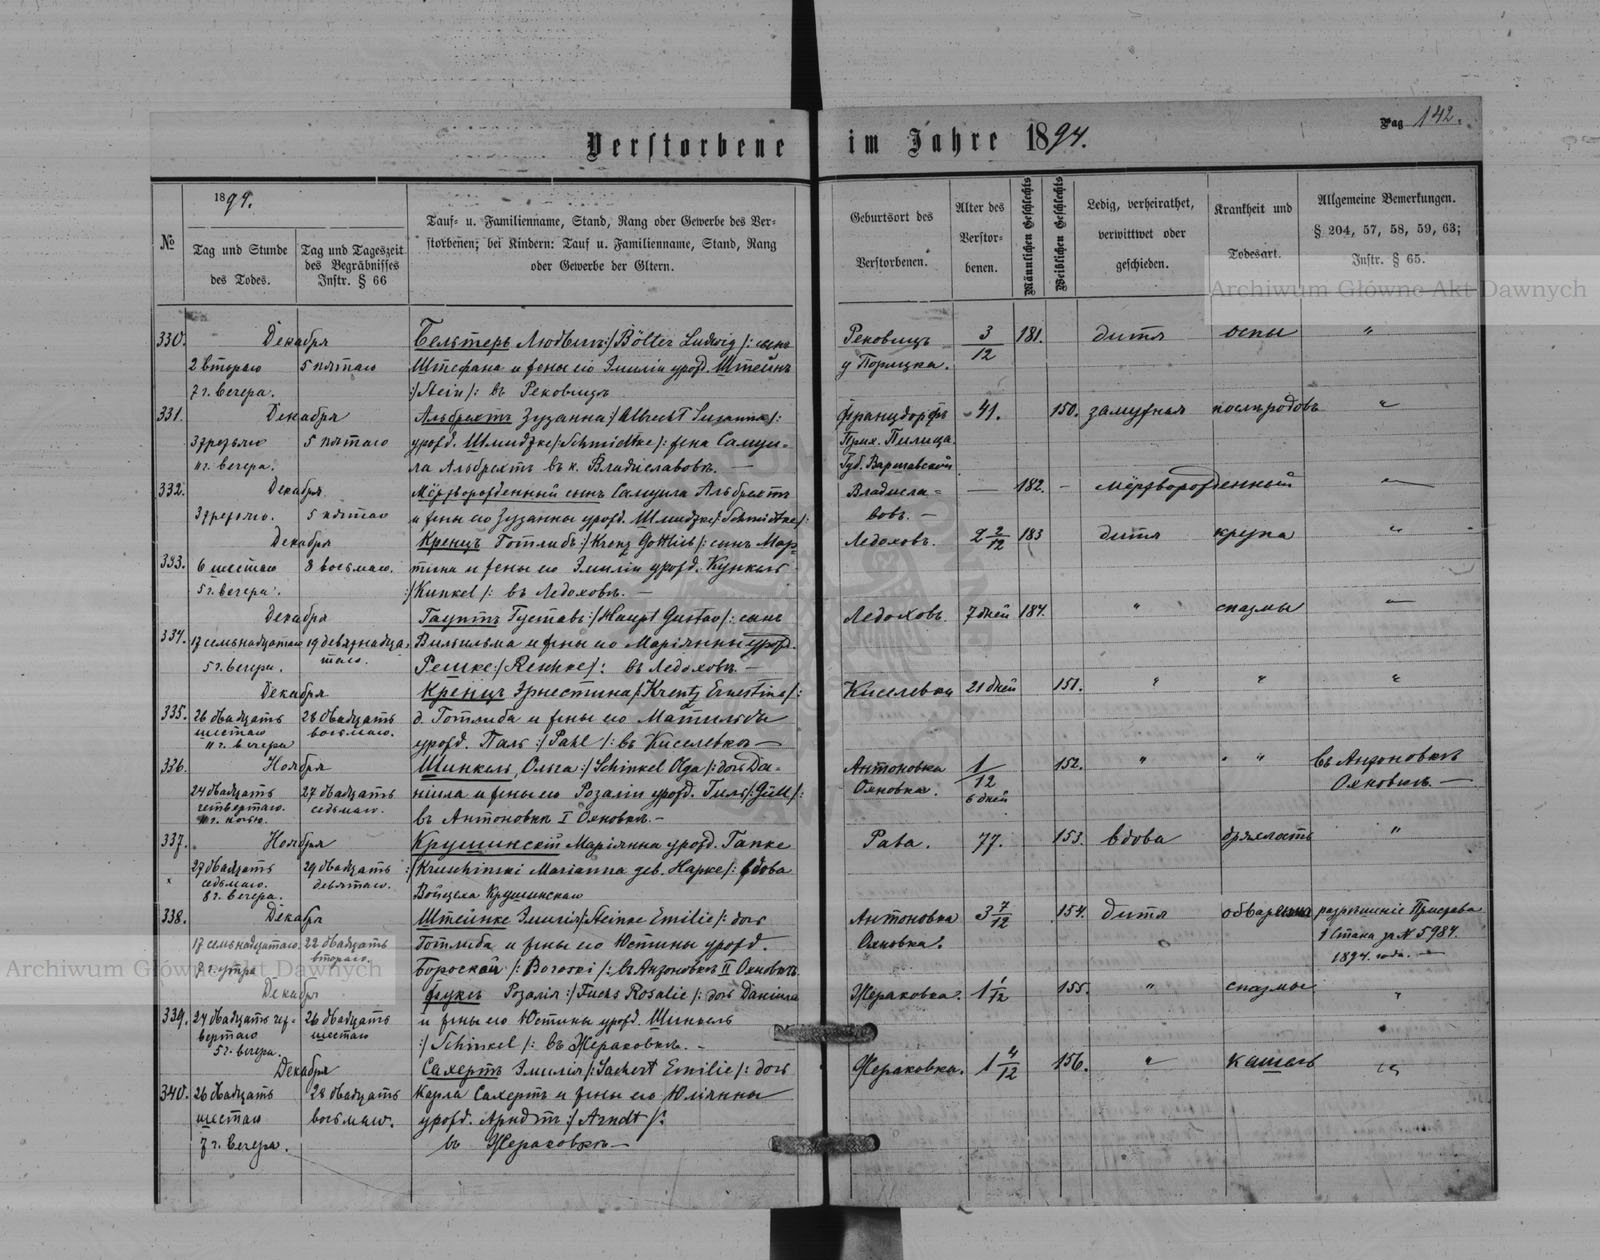 Verstorbene im Jahre 1894.
Pag 142.
№
1894.
Tag und Stunde
des Todes.
Tag und Tageszeit
des Begräbnisses
Instr. § 66
Tauf- u. Familienname, Stand, Rang oder Gewerbe des Ver-
storbenen; bei Kindern: Tauf u. Familienname, Stand, Rang
oder Gewerbe der Eltern.
Geburtsort des
Verstorbenen.
Alter des
Verstor-
benen.
Männlichen Geschlechts
Weiblichen Geschlechts
Ledig, verheirathet,
verwittwet oder
geschieden.
Krankheit und
Todesart.
Allgemeine Bemerkungen.
§ 204, 57, 58, 59, 63;
Instr. § 65.
Archiwum Główne Akt Dawnych
330. Декабря Бельтеръ Людвигъ /: Bölter Ludwig :/ сынъ Рековищъ 3/12 181. дитя оспы "
2 втораго 5 пятаго Штефана и жены его Эмиліи урожд. Штейнъ у Порицка.
7 г. вечера. /: Stein :/ въ Рековищъ
331. Декабря Альбрехтъ Зузанна /: Albrecht Susanna :/ Францдорфъ 41. 150. замужная "
3 третьяго 5 пятаго урожд. Шмидтке /: Schmidtke :/ жена Самуи- Прих. Пилица
11 г. вечера. ла Альбрехтъ въ к. Владиславовкъ. — Губ. Варшавской
332. Декабря Мёртворожденный сынъ Самуила Альбрехтъ Владисла- — 182. — мёртворожденный "
3 третьяго. 5 пятаго и жены его Зузанны урожд. Шмидтке /: Schmidtke :/ вовъ. —
Декабря Кренцъ Готлибъ /: Krenz Gottlieb :/ сынъ Мар- Ледоховъ. 2 2/12 183 дитя крупа "
333. 6 шестаго 8 восьмаго. тина и жены его Эмиліи урожд. Кункель
5 г. вечера. /: Kunkel :/ въ Ледоховъ. —
Декабря Гауптъ Густавъ /: Haupt Gustav :/ сынъ Ледоховъ. 7 дней 184. " спазмы "
334. 17 семьнадцатаго 19 девятнадца- Вильгельма и жены его Маріянны урожд.
5 г. вечера. таго. Решке /: Reschke :/ въ Ледоховъ. —
Декабря Кренцъ Эрнестина /: Krentz Ernestine :/ Киселевки 21 дней 151. " " "
335. 26 двадцать 28 двадцать д. Готлиба и жены его Матильды
шестаго восьмаго.
11 г. вечера урожд. Паль /: Pahl :/ въ Киселевкъ —
336. Ноября Шинкель, Ольга /: Schinkel Olga :/ дочь Да- Антоновка 1/12 152. " " " въ Антоновкъ
24 двадцать 27 двадцать ніила и жены его Розаліи урожд. Гиль /: Güll :/ Охновка. 6 дней Охновкъ. —
четвертаго. седьмаго.
11 г. ночью. въ Антоновкъ I Охновкъ. —
337. Ноября Крушинскій Маріянна урожд. Гапке Рава. 77. 153. вдова дряхлость "
27 двадцать 29 двадцать /: Kruschinski Marianna geb. Hapke :/ вдова
седьмаго. девятаго.
8 г. вечера. Войцеха Крушинскаго
338. Декабря Штейнке Эмилія /: Steinke Emilie :/ дочь Антоновка 3 7/12 154. дитя обварена разрешеніе Пристава
17 семьнадцатаго. 22 двадцать Готлиба и жены его Юстины урожд. Охновка. " 1 Стана за № 5984.
втораго.
7 г. утра Бороской /: Boroski :/ въ Антоновкъ II Охновкъ. 1894. года. —
Archiwum Główne Akt Dawnych
Декабря Фуксъ Розалія /: Fuchs Rosalie :/ дочь Даніила Жераковка. 1 1/12 155. " спазмы "
339. 24 двадцать чет- 26 двадцать и жены его Юстины урожд. Шинкель
вертаго шестаго
5 г. вечера. /: Schinkel :/ въ Жераковкъ. —
Декабря Сахертъ Эмилія /: Sachert Emilie :/ дочь Жераковка. 1 4/12 156. " кашель "
340. 26 двадцать 28 двадцать Карла Сахертъ и жены его Юліянны
шестаго восьмаго. урожд. Арндтъ /: Arndt :/
7 г. вечера. въ Жераковкъ —